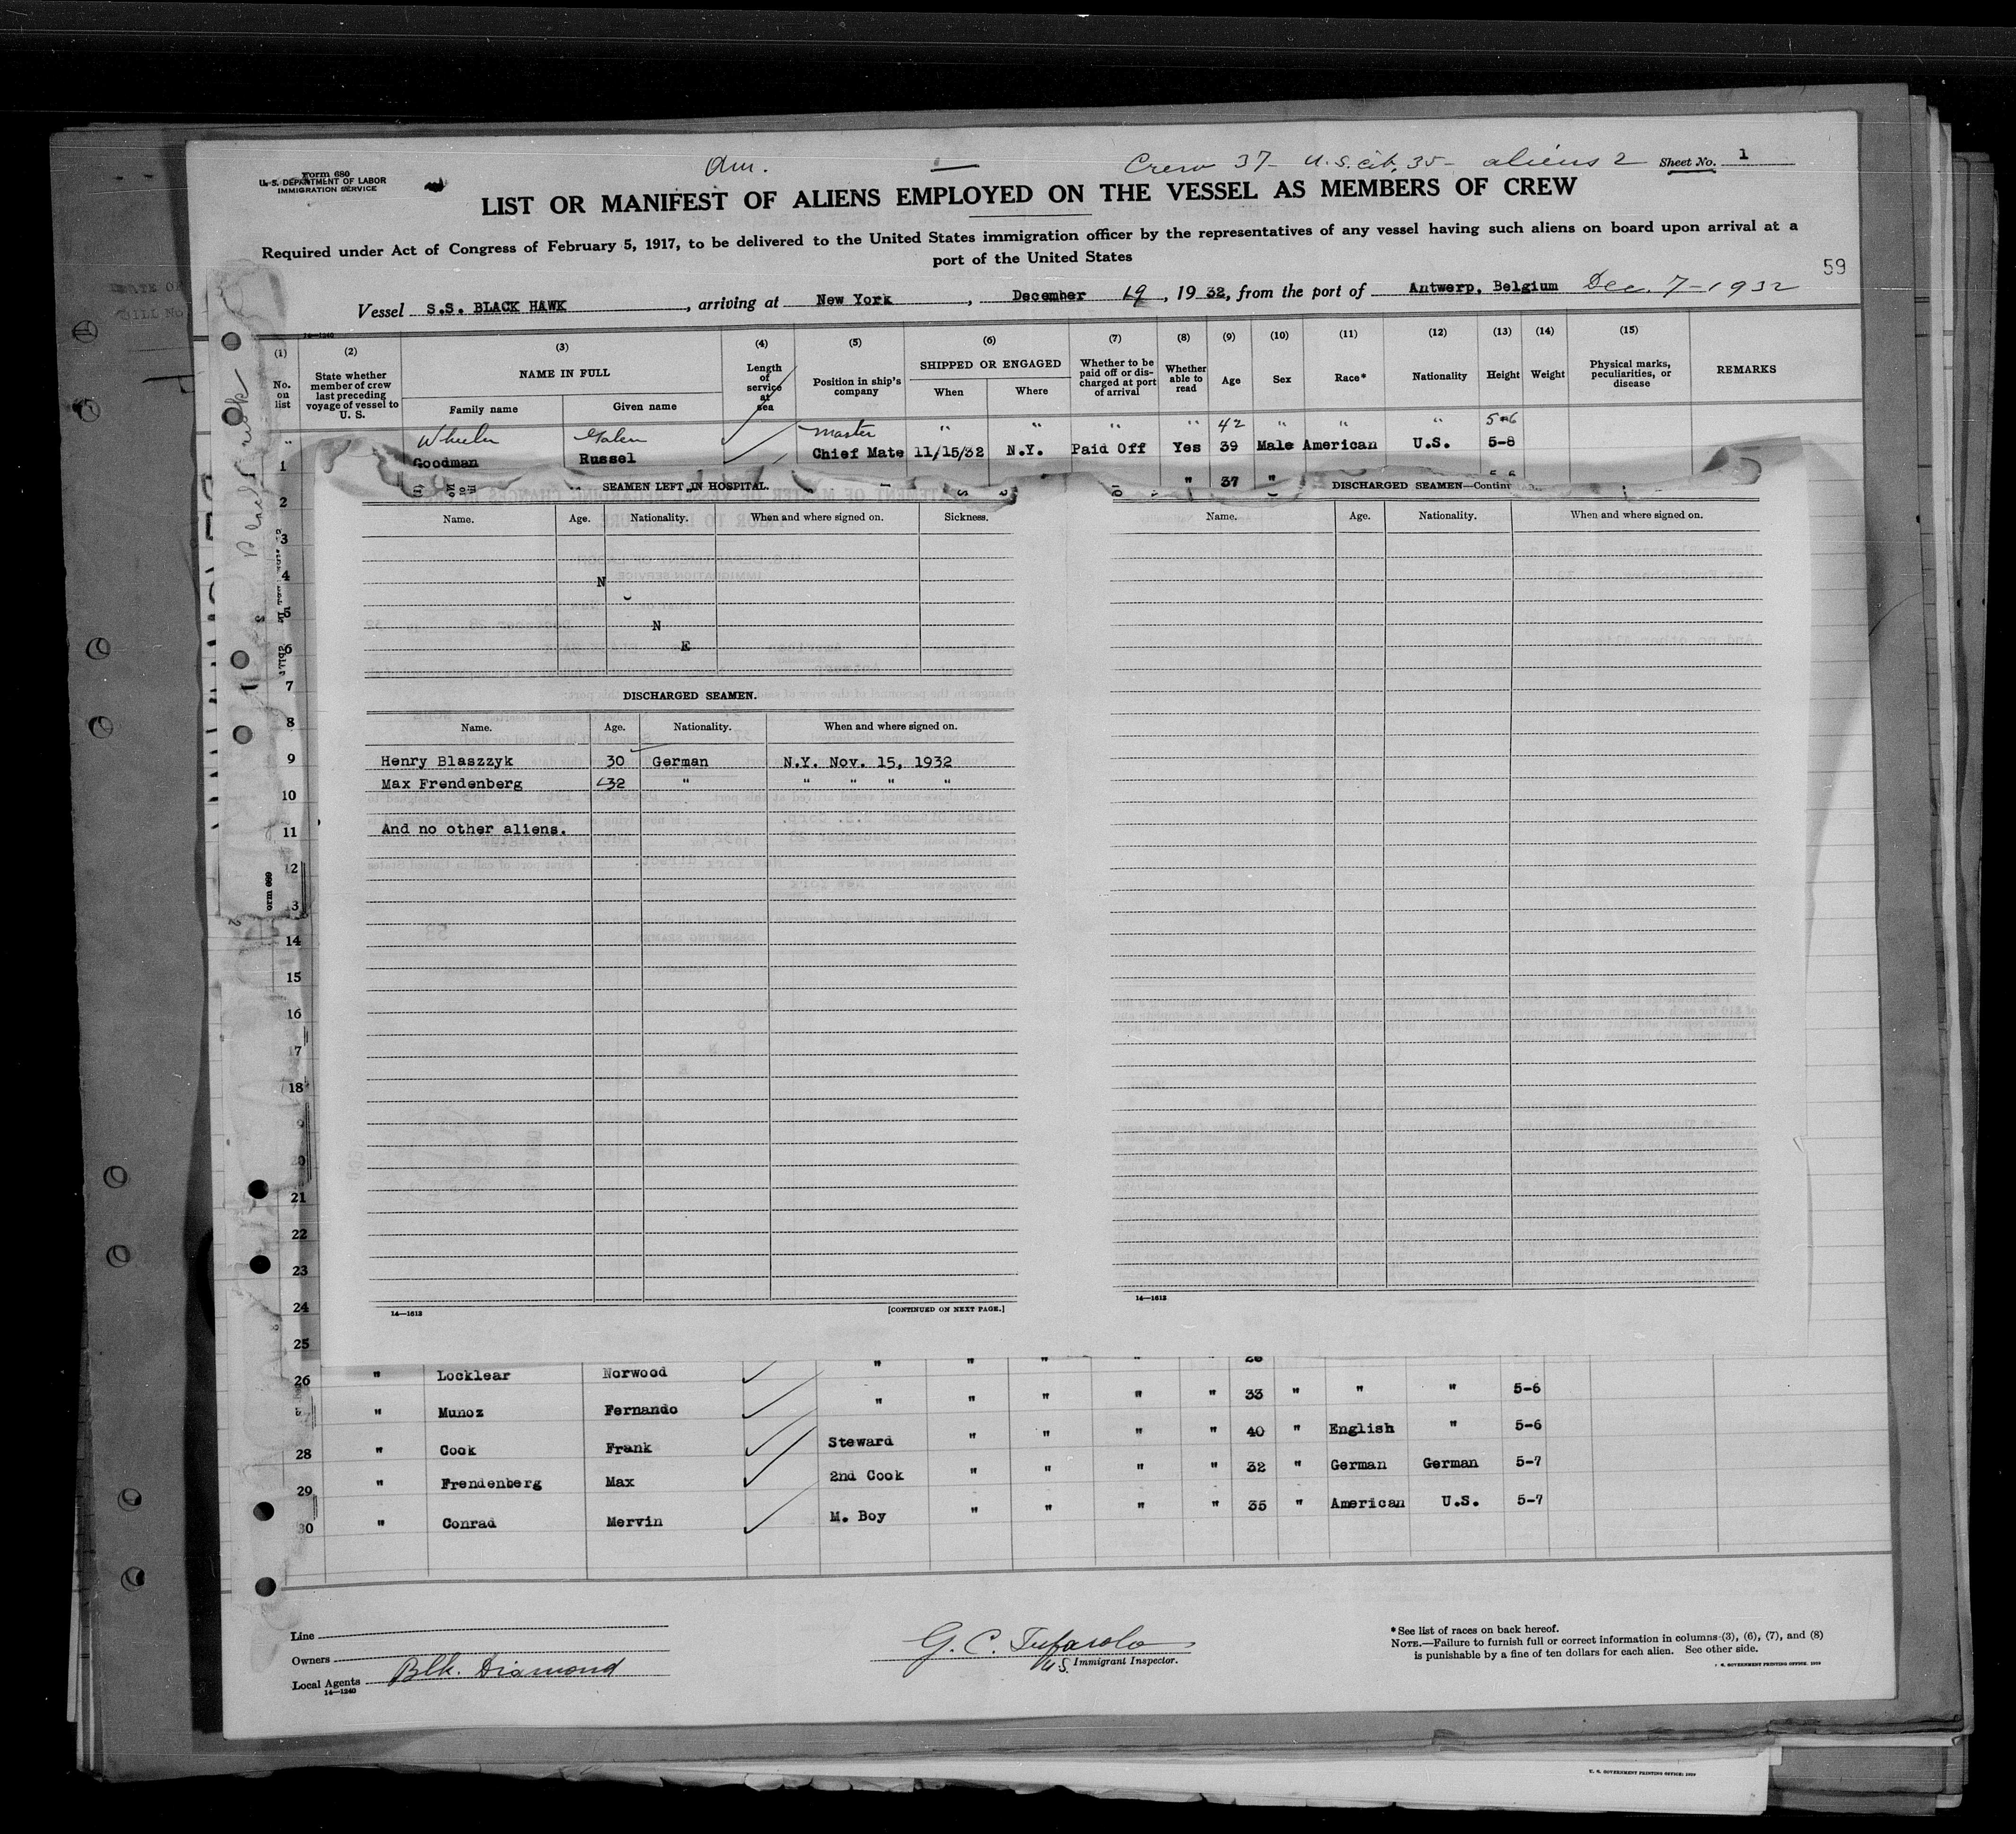 Form 680
U. S. DEPARTMENT OF LABOR
IMMIGRATION SERVICE
Am.
Crew 37- U.S. cit. 35- aliens 2
Sheet No. 1
LIST OR MANIFEST OF ALIENS EMPLOYED ON THE VESSEL AS MEMBERS OF CREW
Required under Act of Congress of February 5, 1917, to be delivered to the United States immigration officer by the representatives of any vessel having such aliens on board upon arrival at a
port of the United States
59
Vessel S.S. BLACK HAWK, arriving at New York, December 19, 1932, from the port of Antwerp, Belgium Dec. 7-1932
14—1240
(1) (2) (3) (4) (5) (6) (7) (8) (9) (10) (11) (12) (13) (14) (15)
No. on list
State whether member of crew last preceding voyage of vessel to U. S.
NAME IN FULL
Family name Given name
Length of service at sea
Position in ship's company
SHIPPED OR ENGAGED
When Where
Whether to be paid off or discharged at port of arrival
Whether able to read
Age Sex Race* Nationality Height Weight
Physical marks, peculiarities, or disease
REMARKS
" Wheeler Galen Master " " " 42 " " " 5-6
1 Goodman Russel Chief Mate 11/15/32 N.Y. Paid Off Yes 39 Male American U.S. 5-8
2 " 37 "
SEAMEN LEFT IN HOSPITAL.
Name. Age. Nationality. When and where signed on. Sickness.
N
N
E
DISCHARGED SEAMEN.
Name. Age. Nationality. When and where signed on.
Henry Blaszzyk 30 German N.Y. Nov. 15, 1932
Max Frendenberg 32 " " " " "
And no other aliens.
14—1613
[CONTINUED ON NEXT PAGE.]
DISCHARGED SEAMEN—Contin
Name. Age. Nationality. When and where signed on.
14—1613
3
4
5
6
7
8
9
10
11
12
13
14
15
16
17
18
9
20
21
22
23
24
25
26 " Locklear Norwood " " " " " 26
" Munoz Fernando " " " " " 33 " " " 5-6
28 " Cook Frank Steward " " " " 40 " English " 5-6
29 " Frendenberg Max 2nd Cook " " " " 32 " German German 5-7
30 " Conrad Mervin M. Boy " " " " 35 " American U.S. 5-7
orm 669
Line
Owners
Local Agents Blk. Diamond
14—1240
G. C. Tufarolo
U.S. Immigrant Inspector.
*See list of races on back hereof.
NOTE.—Failure to furnish full or correct information in columns (3), (6), (7), and (8)
is punishable by a fine of ten dollars for each alien. See other side.
U. S. GOVERNMENT PRINTING OFFICE: 1929